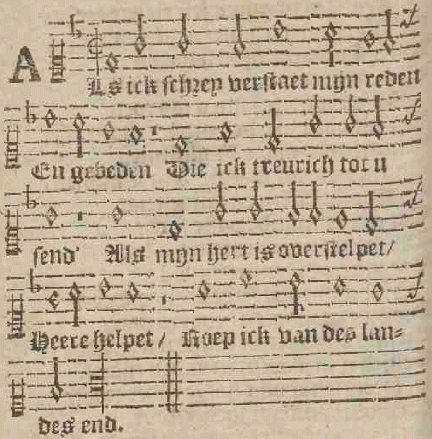 Als ick schrey verstaet mijn reden
En gebeden Die ick treurich tot u
send' Als mijn hert is overstelpet/
Heere helpet/ Roep ick van des lan=
des end.